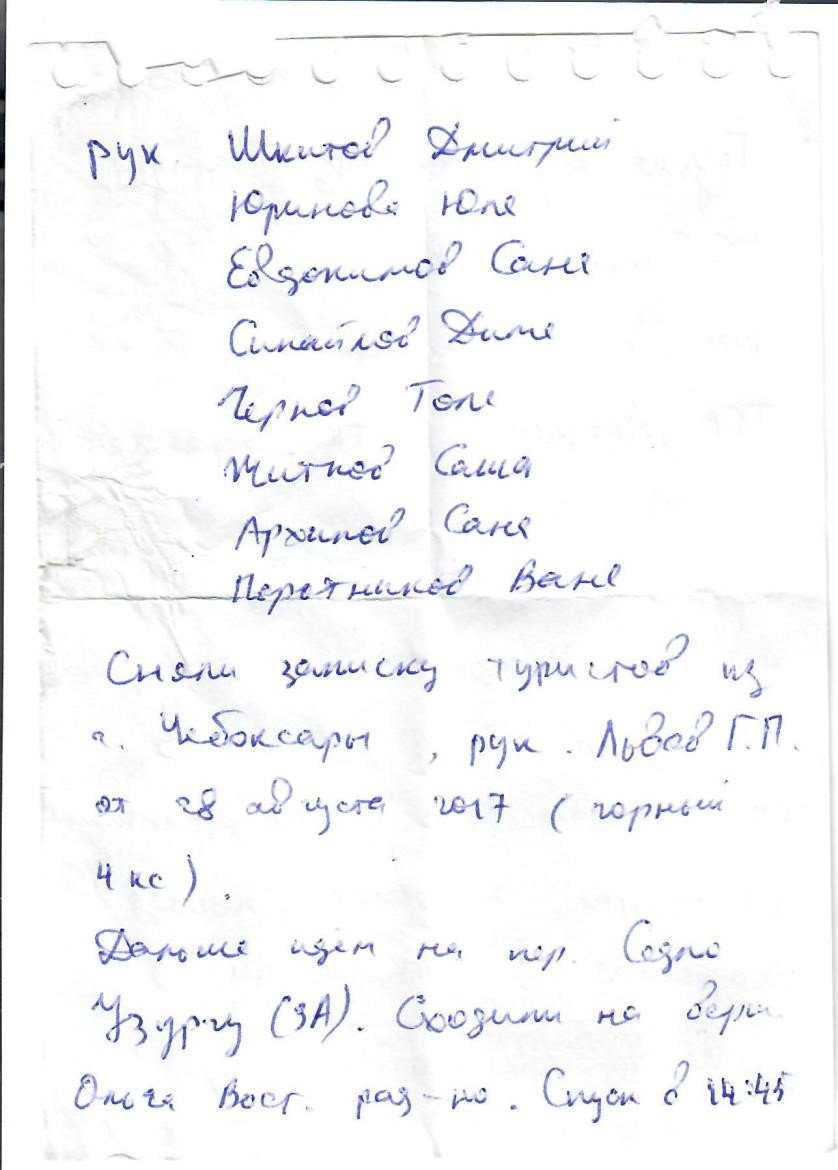 рук. Шкитов Дмитрий
Юринова Юля
Евдокимов Саня
Симайлов Дима
Чернов Толя
Житков Саша
Архипов Саня
Перетников Ваня
Сняли записку туристов из
г. Чебоксары, рук. Львов Г.П.
от 28 августа 2017 (горный
4 кс).
Дальше идём на пер. Седло
Узургу (3А). Сходили на верш.
Ольга Вост. рад-но. Спуск в 14:45